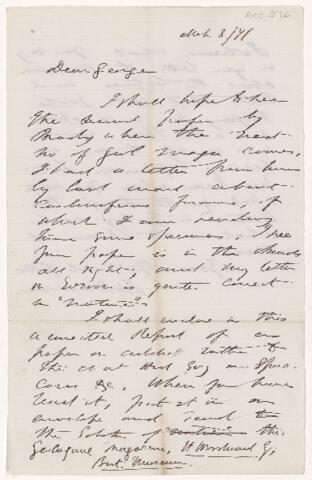 ACC. 576
Mch 3/78
Dear George
I shall hope to hear
the second paper by
Brady when the next
No of Geol Magn comes,
I had a letter from him
by last mail about
Carboniferous forams, of
which I am sending
him some specimens. I see
your paper is in the
all right, and my letter
on Eozoon is quite correct
in "Nature"
I shall enclose in this
a corrected Report of
paper on
&c, When you have
read it, put it in an
envelope and send
the Editor of this
Geological magazine, H Woodward Esq,
Brit. Museum.